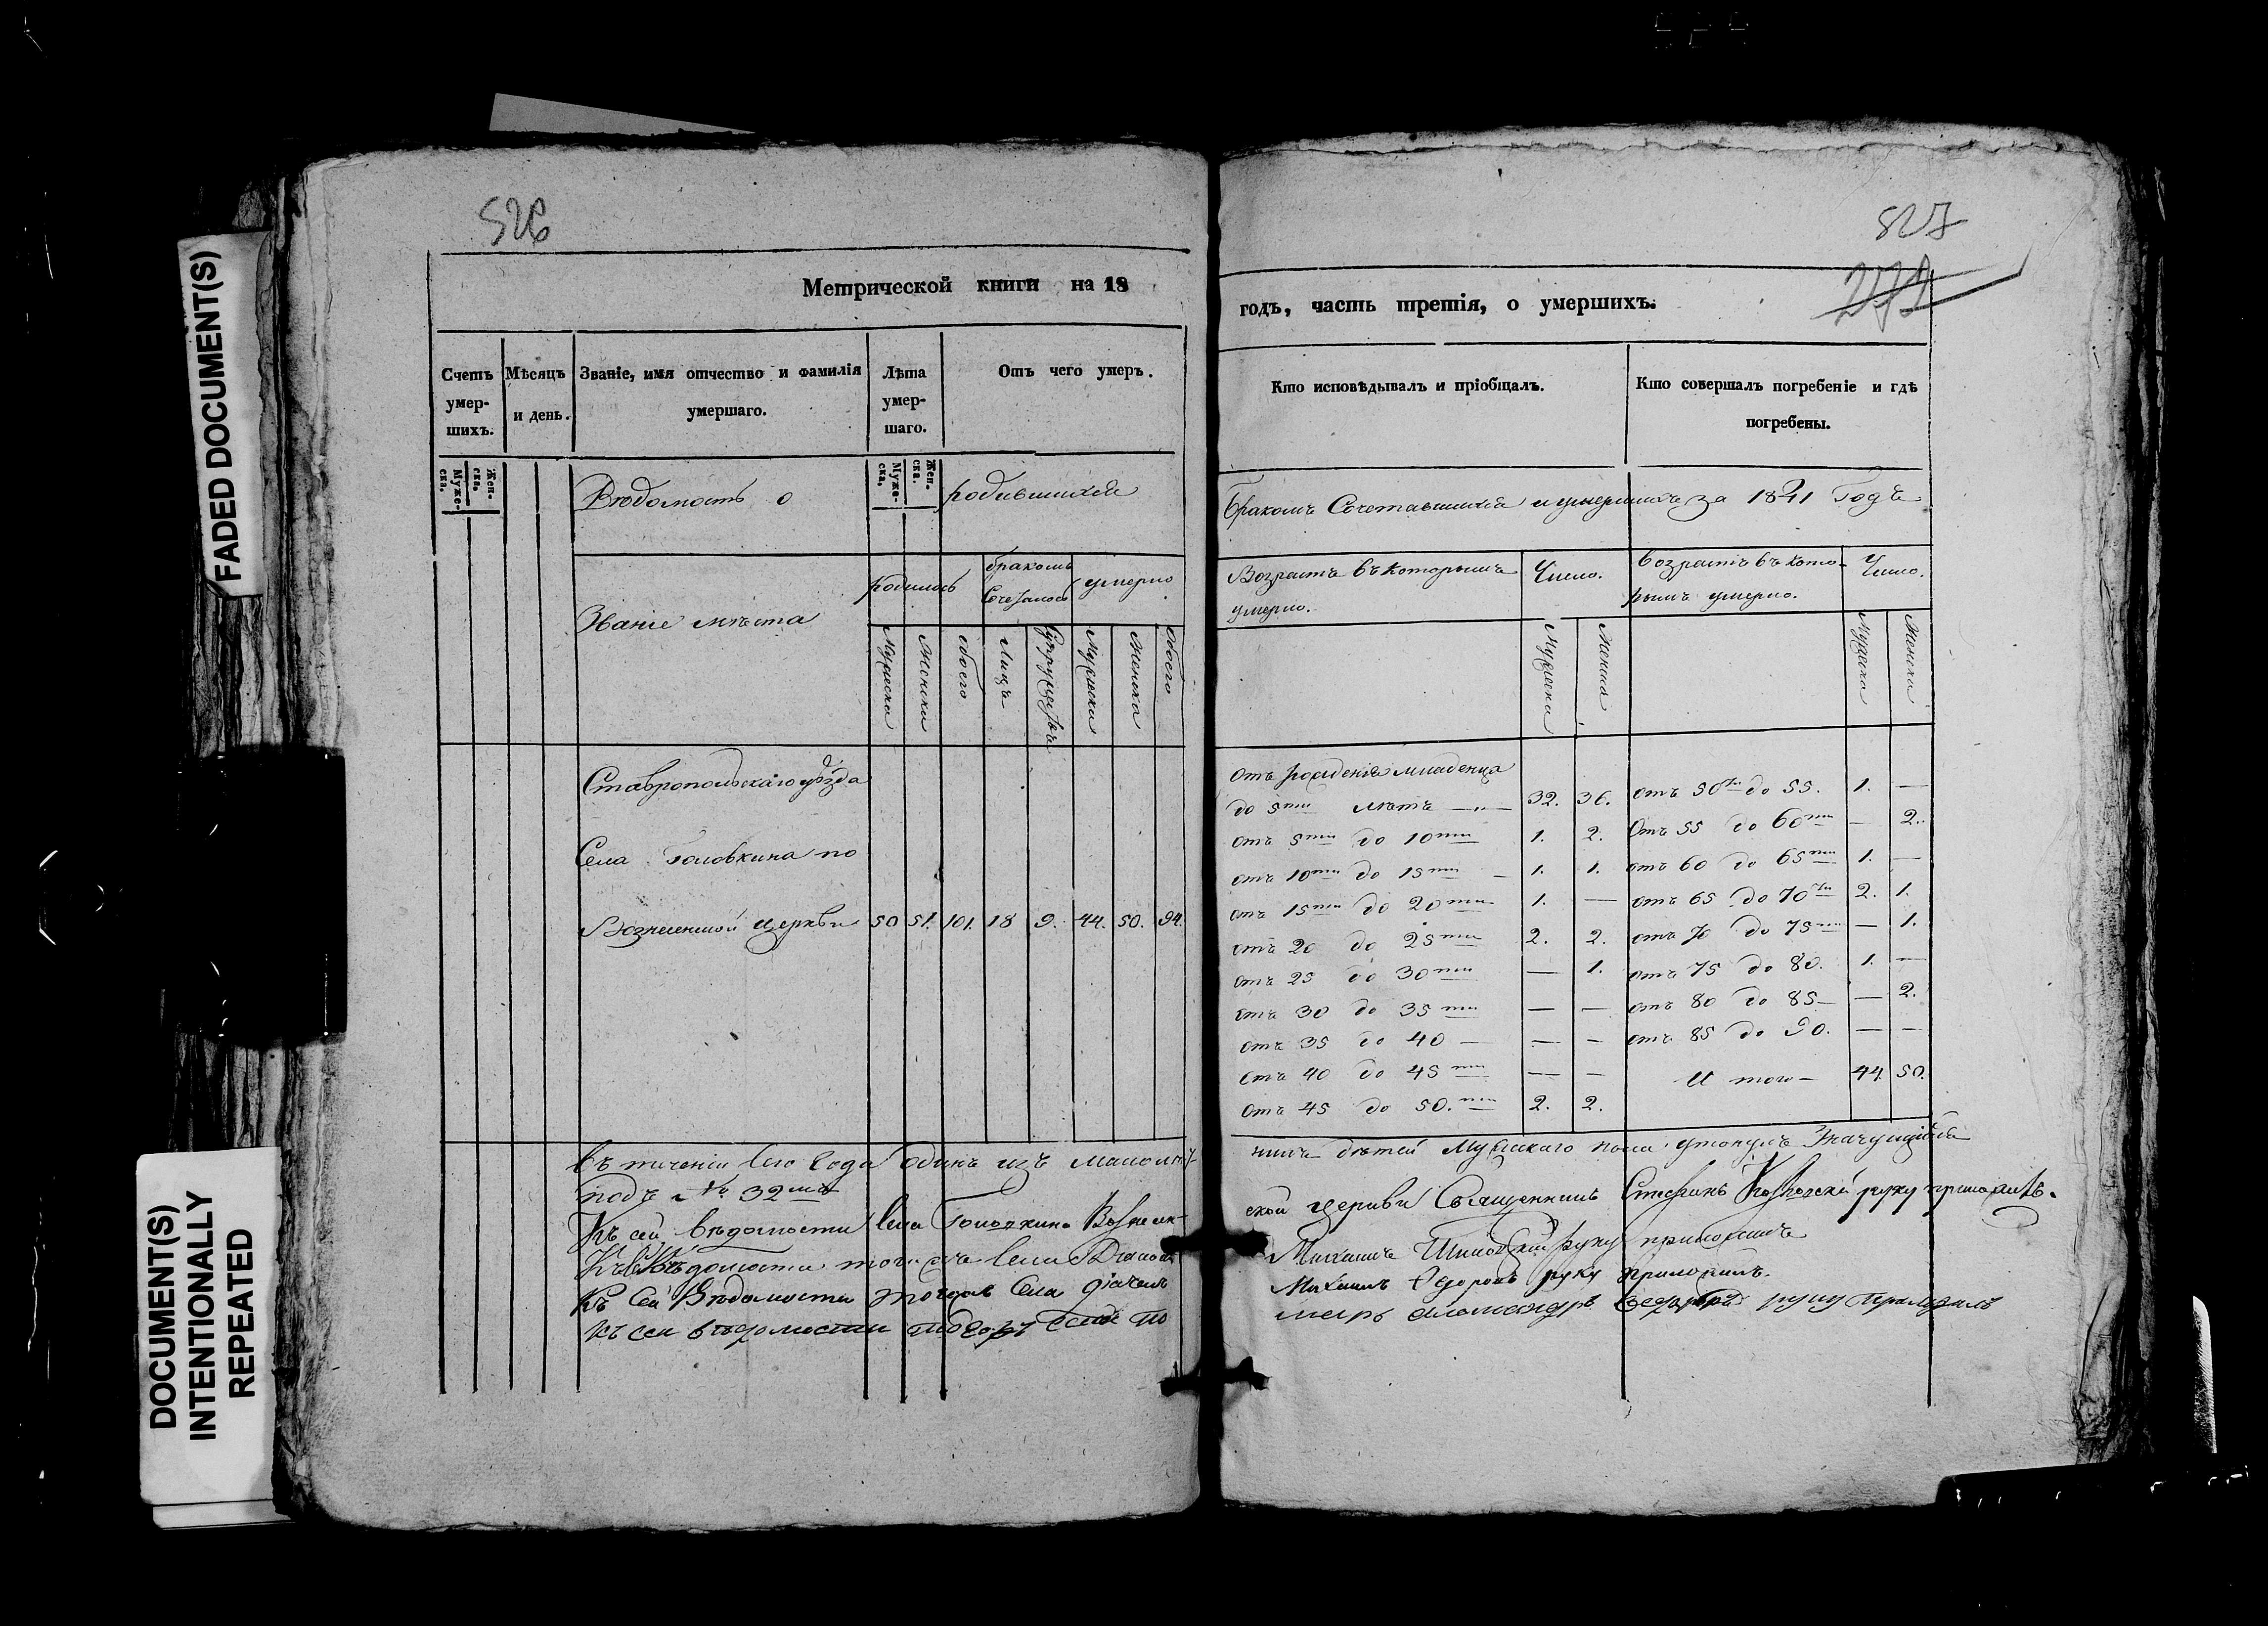 FADED DOCUMENT(S)
DOCUMENT(S)
INTENTIONALLY
REPEATED
526
Метрической книги на 18
Счетъ умер-шихъ.
Мѣсяцъ и день.
Званіе, имя отчество и фамилія умершаго.
Лѣта умер-шаго.
Отъ чего умеръ.
Муже-ска.
Жен-ска.
Муже-ска.
Жен-ска.
Вѣдомость о родившихся
Званіе мѣста
родилось
бракомъ Сочеталось
умерло
Мужеска
Женска
обоего
Лицъ
Супружествъ
Мужеска
Женска
обоего
Ставропольскаго уѣзда
Села Головкина по
Вознесенской церкви 50 51. 101. 18 9. 44. 50. 94.
въ теченіи сего года одинъ изъ малолѣт-
подъ № 32мъ
Къ сей вѣдомости села Головкина Вознесен-
Вѣдомости того же села Діаконъ
Къ сей Вѣдомости тогожъ Села дiачекъ
къ сей вѣдомости тогожъ села по
527
годъ, часть третія, о умершихъ.
Кто исповѣдывалъ и пріобщалъ.
Кто совершалъ погребеніе и гдѣ погребены.
бракомъ Сочетавшихся и умершихъ за 1841 Годъ
Возрастъ въ которомъ умерло.
Число.
возрастъ въ кото-ромъ умерло.
Число.
Мужеска
Женска
Мужеска
Женска
отъ рожденія младенца
до 5ти лѣтъ — 32. 36. отъ 50ти до 55. 1. —
отъ 5ти до 10ти 1. 2. Отъ 55 до 60ти — 2.
отъ 10ти до 15ти — 1. 1. отъ 60 до 65ти 1. —
отъ 15ти до 20ти 1. — отъ 65 до 70ти 2. 1.
отъ 20 до 25ти 2. 2. отъ 70 до 75ти — 1.
отъ 25 до 30ти — 1. отъ 75 до 80. 1. —
отъ 30 до 35ти — — отъ 80 до 85 — — 2.
отъ 35 до 40 — — — отъ 85 до 90. — —
отъ 40 до 45ти — — И того — 44. 50.
отъ 45 до 50.ти 2. 2.
нихъ дѣтей Мужескаго пола утонулъ Значущійся
ской церкви Священникъ Стефанъ руку приложилъ.
Михаилъ руку приложилъ
Михаилъ Федоровъ руку приложилъ.
марь александръ руку приложилъ